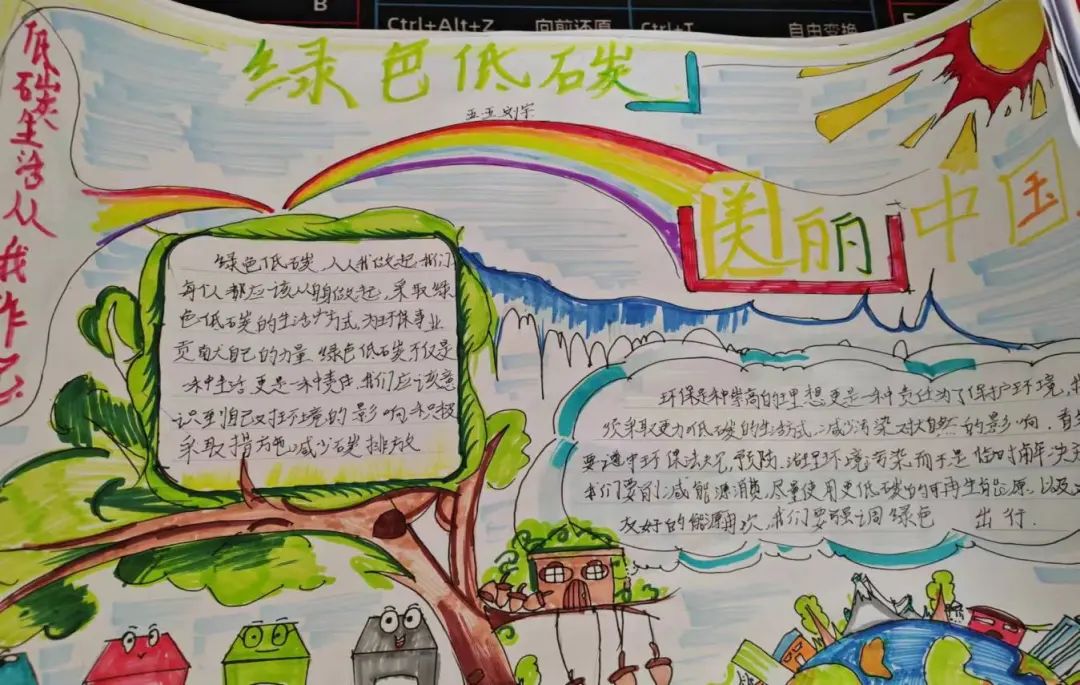 B
Ctrl+Alt+Z 向前还原 Ctrl+T 自由变换
绿色低碳
五五刘宇
低碳生活从我作
美丽中国
绿色低碳,人人我做起,我们
每个人都应该从自身做起,采取绿
色低碳的生活方式,为环保事业
贡献自己的力量,绿色低碳不仅是
一种生活更是一种责任,我们应该意
识到自己对环境的影响积极
采取措施减少碳排放
环保是种崇高的理想更是一种责任为了保护环境,我
须采取更力低碳的生活方式,减少污染对大自然的影响,
要遵守环保法规,预防、治理环境污染而于是临时
我们要削减能源消费,尽量使用更低碳的可再生能源,以及
友好的能源再次,我们要强调绿色 出行.